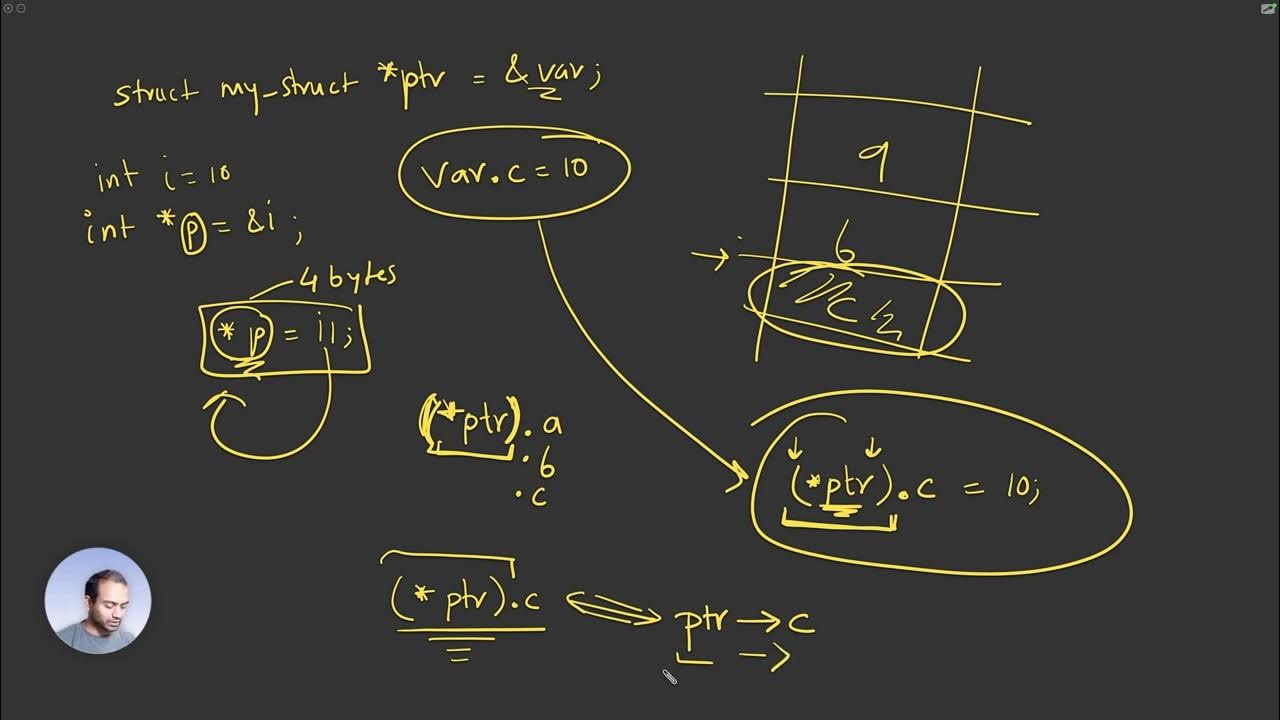 struct my_struct *ptr = &var;
var.c = 10
int i = 10
int *p = &i ;
4 bytes
*p = 11;
9
6
c
(*ptr).a
.b
.c
(*ptr).c = 10;
(*ptr).c
ptr → c
→